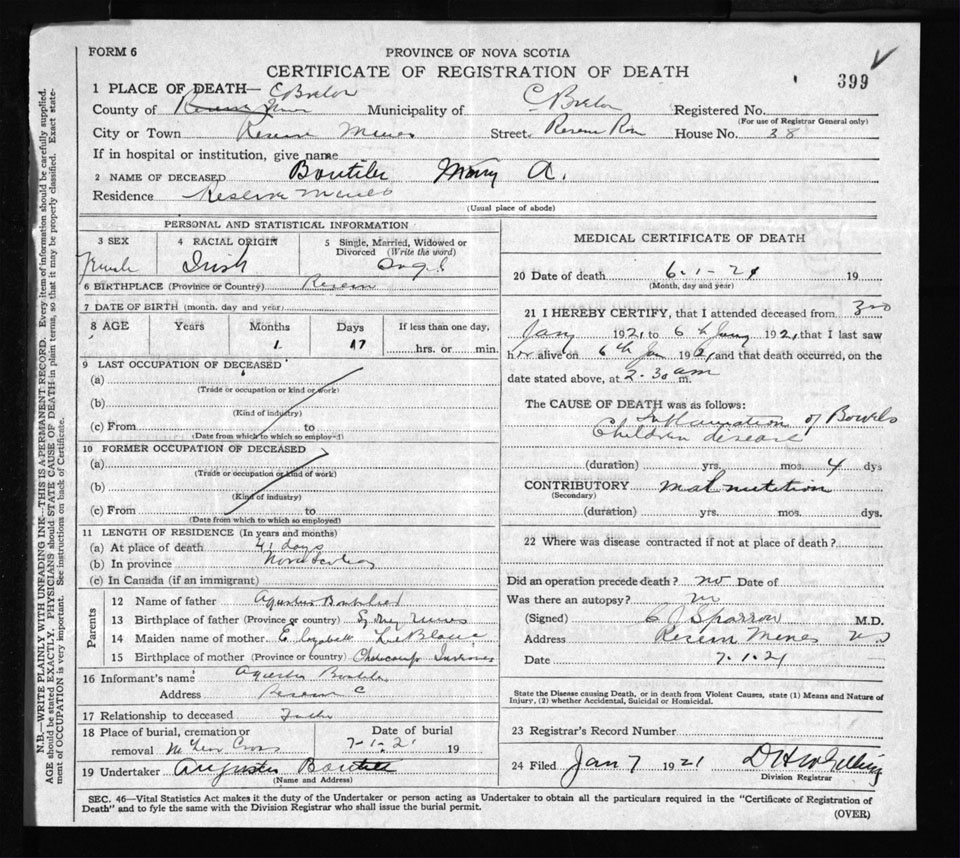 FORM 6
PROVINCE OF NOVA SCOTIA
CERTIFICATE OF REGISTRATION OF DEATH
399
1 PLACE OF DEATH— C Breton
County of Reserve Mines Municipality of C Breton Registered No.
(For use of Registrar General only)
City or Town Reserve Mines Street Reserve Row House No. 38
If in hospital or institution, give name
2 NAME OF DECEASED Boutilier Mary A.
Residence Reserve Mines
(Usual place of abode)
PERSONAL AND STATISTICAL INFORMATION
3 SEX 4 RACIAL ORIGIN 5 Single, Married, Widowed or Divorced (Write the word)
Female Irish Single
6 BIRTHPLACE (Province or Country) Reserve
7 DATE OF BIRTH (month, day and year)
8 AGE Years Months Days If less than one day,
1 17 hrs. or min.
9 LAST OCCUPATION OF DECEASED
(a)
(Trade or occupation or kind or work)
(b)
(Kind of industry)
(c) From to
(Date from which to which so employed)
10 FORMER OCCUPATION OF DECEASED
(a)
(Trade or occupation or kind of work)
(b)
(Kind of industry)
(c) From to
(Date from which to which so employed)
11 LENGTH OF RESIDENCE (In years and months)
(a) At place of death 41 days
(b) In province Nova Scotia
(c) In Canada (if an immigrant)
Parents
12 Name of father Agustus Boutilier
13 Birthplace of father (Province or country) Sydney Mines
14 Maiden name of mother Elizabeth Le Blanc
15 Birthplace of mother (Province or country) Chéticamp Inverness
16 Informant's name Agustus Boutilier
Address Reserve C
17 Relationship to deceased Father
18 Place of burial, cremation or removal Date of burial
Cross 7-1-21 19
19 Undertaker Augustus Boutilier
(Name and Address)
MEDICAL CERTIFICATE OF DEATH
20 Date of death 6-1-21 19
(Month, day and year)
21 I HEREBY CERTIFY, that I attended deceased from 3rd
Jany 1921, to 6th Jany 1921, that I last saw
her alive on 6th Jan 1921, and that death occurred, on the
date stated above, at 2-30 am m.
The CAUSE OF DEATH was as follows:
Inflammation of Bowels
Children disease
(duration) yrs. mos. 4 dys
CONTRIBUTORY Malnutrition
(Secondary)
(duration) yrs. mos. dys.
22 Where was disease contracted if not at place of death?
Did an operation precede death? no Date of
Was there an autopsy? no
(Signed) Sparrow M.D.
Address Reserve Mines N S
Date 7-1-21
State the Disease causing Death, or in death from Violent Causes, state (1) Means and Nature of
Injury, (2) whether Accidental, Suicidal or Homicidal.
23 Registrar's Record Number
24 Filed Jan 7 1921
Division Registrar
SEC. 46—Vital Statistics Act makes it the duty of the Undertaker or person acting as Undertaker to obtain all the particulars required in the "Certificate of Registration of
Death" and to fyle the same with the Division Registrar who shall issue the burial permit.
(OVER)
N.B.—WRITE PLAINLY WITH UNFADING INK—THIS IS A PERMANENT RECORD. Every item of information should be carefully supplied.
AGE should be stated EXACTLY. PHYSICIANS should STATE CAUSE OF DEATH in plain terms, so that it may be properly classified. Exact statement of OCCUPATION is very important. See instructions on back of Certificate.